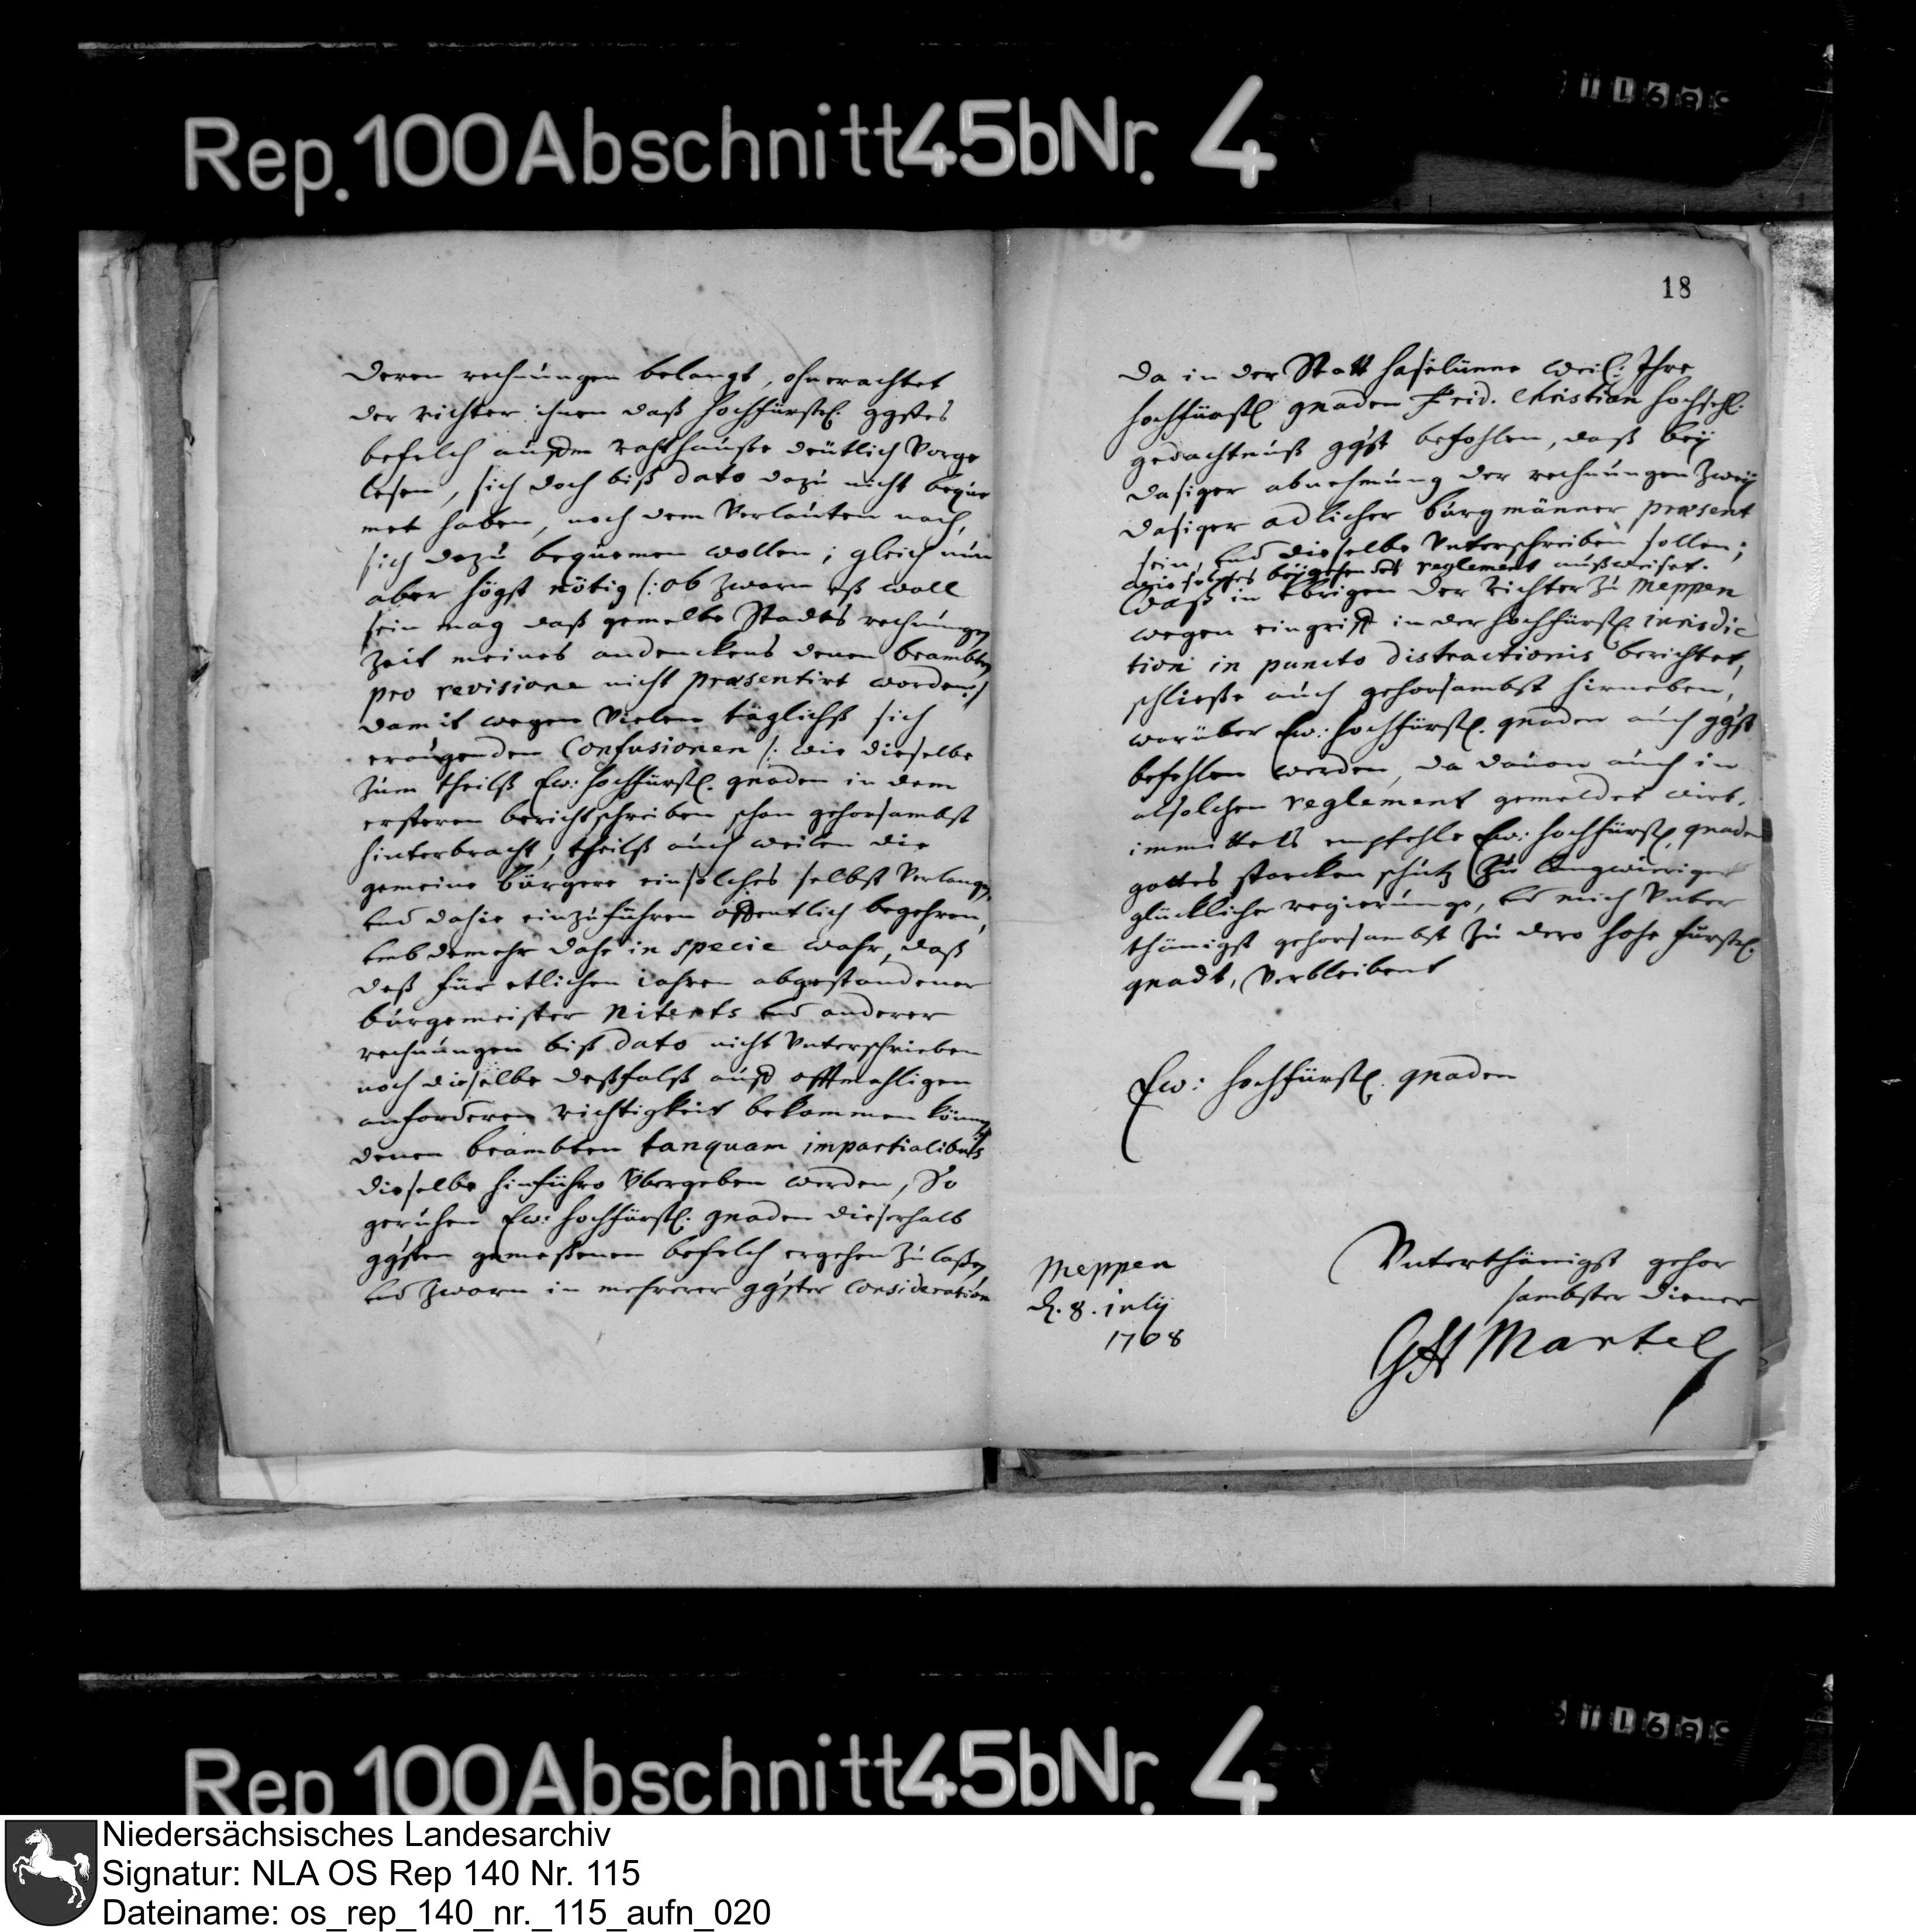 Rep. 100 Abschnitt 45b Nr. 4
deren rechnungen belangt, ohnerachtet
der richter ihnen daß hochfürstl. ggstes
befelch auffm rahthauße deütlich Vorge
lesen, sich doch biß dato dazu nicht beque
met haben, noch dem Verlauten nach,
sich dazu bequemen wollen; gleich nun
aber högst nötig /: ob zwarn eß woll
sein mag daß gemelte Stadts rechnungen
zeit meines andenckens denen beambten
pro revisione nicht præsentirt worden :/
damit wegen Vielen täglichß sich
eraugenden Confusionen /: wie dieselbe
zum theilß Ew: hochfürstl. gnaden in dem
ersteren berichtschreiben schon gehorsambst
hinterbracht, theilß auch weilen die
gemeine bürgere einsolches selbst Verlangen,
und dahie einzuführen offentlich begehren,
umb demehr dahe in specie wahr, daß
deß für etlichen iahren abgestandener
bürgemeister und anderer
rechnungen biß dato nicht Unterschrieben
noch dieselbe deßfalß auff offtmahligen
anforderen richtigkeit bekommen können
denen beambten tanquam impartialibus
dieselbe hinführo Übergeben werden, So
geruhen Ew: hochfürstl: gnaden dieserhalb
ggsten gemeßenen befelch ergehen zu laßen
und zwarn in mehrerer ggster consideration
18
da in der Statt haselünne weil: Ihre
hochfürstl gnaden Frid. Christian hochsehl.
gedachtnuß ggst befohlen, daß bey
dasiger abnehmung der rechnungen zwey
dasiger adlicher bürgmänner præsent
sein, und dieselbe Unterschreiben sollen;
wie solches beygehendes reglement außweiset.
Waß in übrigen der richter zu Meppen
wegen eingriff in der hochfürstl. iurisdic
tion in puncto distractionis berichtet,
schließe auch gehorsambst hirneben,
worüber Ew: hochfürstl. gnaden auch ggst
befehlen werden, da dauon auch in
alsolchen reglement gemeldet wirt.
immittels empfehle Ew: hochfürstl. gnaden
gottes starcken schutz zu langwieriger
glücklicher regierunge, und mich Unter
thänigst gehorsambst zu dero hohe fürstl.
gnadt, Verbleibent
Ew: hochfürstl. gnaden
Unterthänigst gehor
sambster diener
Meppen
d. 8. july
1708
GH Martels
Rep 100 Abschnitt 45b Nr. 4
Niedersächsisches Landesarchiv
Signatur: NLA OS Rep 140 Nr. 115
Dateiname: os_rep_140_nr._115_aufn_020